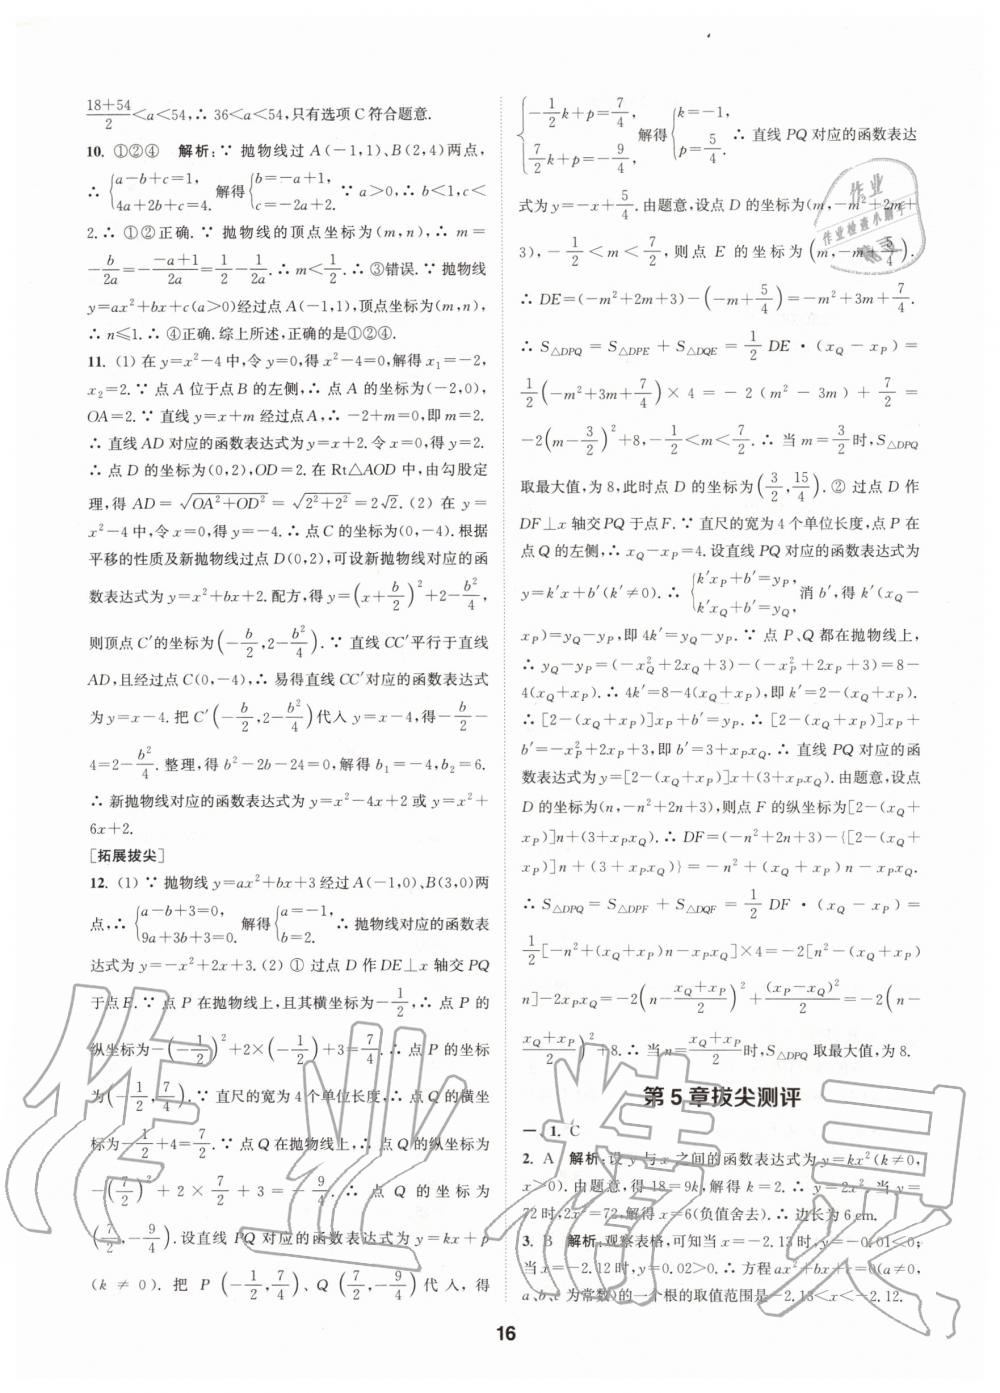 18+54/2<a<54,∴ 36<a<54,只有选项C符合题意.
10. ①②④ 解析:∵ 抛物线过A(-1,1)、B(2,4)两点,
∴ {a-b+c=1, 4a+2b+c=4. 解得{b=-a+1, c=-2a+2. ∵ a>0,∴ b<1,c<
2.∴ ①②正确.∵ 抛物线的顶点坐标为(m,n),∴ m=
-b/2a=-(-a+1)/2a=1/2-1/2a.∴ m<1/2.∴ ③错误.∵ 抛物线
y=ax²+bx+c(a>0)经过点A(-1,1),顶点坐标为(m,n),
∴ n≤1.∴ ④正确.综上所述,正确的是①②④.
11. (1) 在y=x²-4中,令y=0,得x²-4=0,解得x₁=-2,
x₂=2.∵ 点A位于点B的左侧,∴ 点A的坐标为(-2,0),
OA=2.∵ 直线y=x+m经过点A,∴ -2+m=0,即m=2.
∴ 直线AD对应的函数表达式为y=x+2.令x=0,得y=2.
∴ 点D的坐标为(0,2),OD=2.在Rt△AOD中,由勾股定
理,得AD=√(OA²+OD²)=√(2²+2²)=2√2.(2) 在y=
x²-4中,令x=0,得y=-4.∴ 点C的坐标为(0,-4).根据
平移的性质及新抛物线过点D(0,2),可设新抛物线对应的函
数表达式为y=x²+bx+2.配方,得y=(x+b/2)²+2-b²/4,
则顶点C′的坐标为(-b/2,2-b²/4).∵ 直线CC′平行于直线
AD,且经过点C(0,-4),∴ 易得直线CC′对应的函数表达式
为y=x-4.把C′(-b/2,2-b²/4)代入y=x-4,得-b/2-
4=2-b²/4.整理,得b²-2b-24=0,解得b₁=-4,b₂=6.
∴ 新抛物线对应的函数表达式为y=x²-4x+2或y=x²+
6x+2.
[拓展拔尖]
12. (1) ∵ 抛物线y=ax²+bx+3经过A(-1,0)、B(3,0)两
点,∴ {a-b+3=0, 9a+3b+3=0. 解得{a=-1, b=2. ∴ 抛物线对应的函数表
达式为y=-x²+2x+3.(2) ① 过点D作DE⊥x轴交PQ
于点E.∵ 点P在抛物线上,且其横坐标为-1/2,∴ 点P的
纵坐标为-(-1/2)²+2×(-1/2)+3=7/4.∴ 点P的坐标
为(-1/2,7/4).∵ 直尺的宽为4个单位长度,∴ 点Q的横坐
标为-1/2+4=7/2.∵ 点Q在抛物线上,∴ 点Q的纵坐标为
-(7/2)²+2×7/2+3=-9/4.∴ 点Q的坐标为
(7/2,-9/4).设直线PQ对应的函数表达式为y=kx+p
(k≠0).把P(-1/2,7/4)、Q(7/2,-9/4)代入,得
{-1/2k+p=7/4, 7/2k+p=-9/4. 解得{k=-1, p=5/4. ∴ 直线PQ对应的函数表达
式为y=-x+5/4.由题意,设点D的坐标为(m,-m²+2m+
3),-1/2<m<7/2,则点E的坐标为(m,-m+5/4).
∴ DE=(-m²+2m+3)-(-m+5/4)=-m²+3m+7/4.
∴ S△DPQ=S△DPE+S△DQE=1/2DE·(xQ-xP)=
1/2(-m²+3m+7/4)×4=-2(m²-3m)+7/2=
-2(m-3/2)²+8,-1/2<m<7/2.∴ 当m=3/2时,S△DPQ
取最大值,为8,此时点D的坐标为(3/2,15/4).② 过点D作
DF⊥x轴交PQ于点F.∵ 直尺的宽为4个单位长度,点P在
点Q的左侧,∴ xQ-xP=4.设直线PQ对应的函数表达式为
y=k′x+b′(k′≠0).∴ {k′xP+b′=yP, k′xQ+b′=yQ, 消b′,得k′(xQ-
xP)=yQ-yP,即4k′=yQ-yP.∵ 点P、Q都在抛物线上,
∴ yQ-yP=(-xQ²+2xQ+3)-(-xP²+2xP+3)=8-
4(xQ+xP).∴ 4k′=8-4(xQ+xP),即k′=2-(xQ+xP).
∴ [2-(xQ+xP)]xP+b′=yP.∴ [2-(xQ+xP)]xP+
b′=-xP²+2xP+3,即b′=3+xPxQ.∴ 直线PQ对应的函
数表达式为y=[2-(xQ+xP)]x+(3+xPxQ).由题意,设点
D的坐标为(n,-n²+2n+3),则点F的纵坐标为[2-(xQ+
xP)]n+(3+xPxQ).∴ DF=(-n²+2n+3)-{[2-(xQ+
xP)]n+(3+xPxQ)}=-n²+(xQ+xP)n-xPxQ.
∴ S△DPQ=S△DPF+S△DQF=1/2DF·(xQ-xP)=
1/2[-n²+(xQ+xP)n-xPxQ]×4=-2[n²-(xQ+xP)
n]-2xPxQ=-2(n-(xQ+xP)/2)²+(xP-xQ)²/2=-2(n-
(xQ+xP)/2)²+8.∴ 当n=(xQ+xP)/2时,S△DPQ取最大值,为8.
第5章拔尖测评
一、1. C
2. A 解析:设y与x之间的函数表达式为y=kx²(k≠0,
x>0).由题意,得18=9k,解得k=2.∴ y=2x².当y=
72时,2x²=72.解得x=6(负值舍去).∴ 边长为6 cm.
3. B 解析:观察表格,可知当x=-2.13时,y=-0.01<0;
当x=-2.12时,y=0.02>0.∴ 方程ax²+bx+c=0(a≠0,
a、b、c为常数)的一个根的取值范围是-2.13<x<-2.12.
16
作业
作业检查小助手
精灵
作业精灵